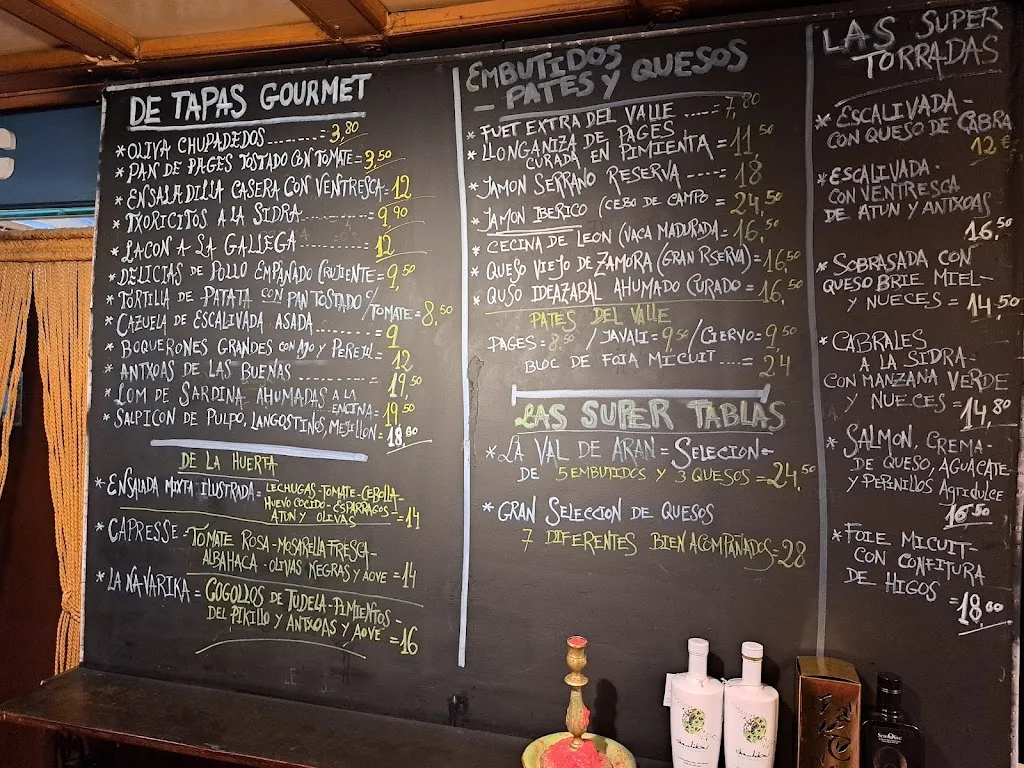 DE TAPAS GOURMET
* OLIVA CHUPADEDOS ......= 3,80
* PAN DE PAGES TOSTADO CON TOMATE = 3,50
* ENSALADILLA CASERA CON VENTRESCA = 12
* TXORICITOS A LA SIDRA ........ = 9,90
* LACON A LA GALLEGA .......... = 12
* DELICIAS DE POLLO EMPANADO CRUJIENTE = 9,50
* TORTILLA DE PATATA CON PAN TOSTADO C/
TOMATE = 8,50
* CAZUELA DE ESCALIVADA ASADA ........ = 9
* BOQUERONES GRANDES CON AJO Y PEREJIL = 12
* ANTXOAS DE LAS BUENAS .......... = 19,50
* LOM DE SARDINA AHUMADAS A LA
ENCINA = 19,50
* SALPICON DE PULPO, LANGOSTINOS, MEJILLON = 18,80
DE LA HUERTA
* ENSALADA MIXTA ILUSTRADA = LECHUGAS - TOMATE - CEBOLLA -
HUEVO COCIDO - ESPARRAGOS -
ATUN Y OLIVAS = 14
* CAPRESSE - TOMATE ROSA - MOSARELLA FRESCA -
ALBAHACA - OLIVAS NEGRAS Y AOVE = 14
* LA NAVARIKA = COGOLLOS DE TUDELA - PIMIENTOS -
DEL PIKILLO Y ANTXOAS Y AOVE = 16
EMBUTIDOS
- PATES Y QUESOS
* FUET EXTRA DEL VALLE ..... = 7,80
* LLONGANIZA DE PAGES
CURADA EN PIMIENTA = 11,50
* JAMON SERRANO RESERVA ---- = 18
* JAMON IBERICO (CEBO DE CAMPO = 24,50
* CECINA DE LEON (VACA MADURADA = 16,50
* QUESO VIEJO DE ZAMORA (GRAN RSERVA) = 16,50
* QUSO IDEAZABAL AHUMADO CURADO = 16,50
PATES DEL VALLE
PAGES = 8,50 / JAVALI = 9,50 / CIERVO = 9,50
BLOC DE FOIA MICUIT ..... = 24
LAS SUPER TABLAS
* LA VAL DE ARAN = SELECION =
DE 5 EMBUTIDOS Y 3 QUESOS = 24,50
* GRAN SELECCION DE QUESOS
7 DIFERENTES BIEN ACOMPAÑADOS = 28
LAS SUPER
TORRADAS
* ESCALIVADA -
CON QUESO DE CABRA
12 €
* ESCALIVADA -
CON VENTRESCA
DE ATUN Y ANTXOAS
16,50
* SOBRASADA CON
QUESO BRIE MIEL -
Y NUECES = 14,50
* CABRALES
A LA SIDRA -
CON MANZANA VERDE
Y NUECES = 14,80
* SALMON, CREMA -
DE QUESO, AGUACATE,
Y PEPINILLOS AGRIDULCE
16,50
* FOIE MICUIT -
CON CONFITURA
DE HIGOS
= 18,80